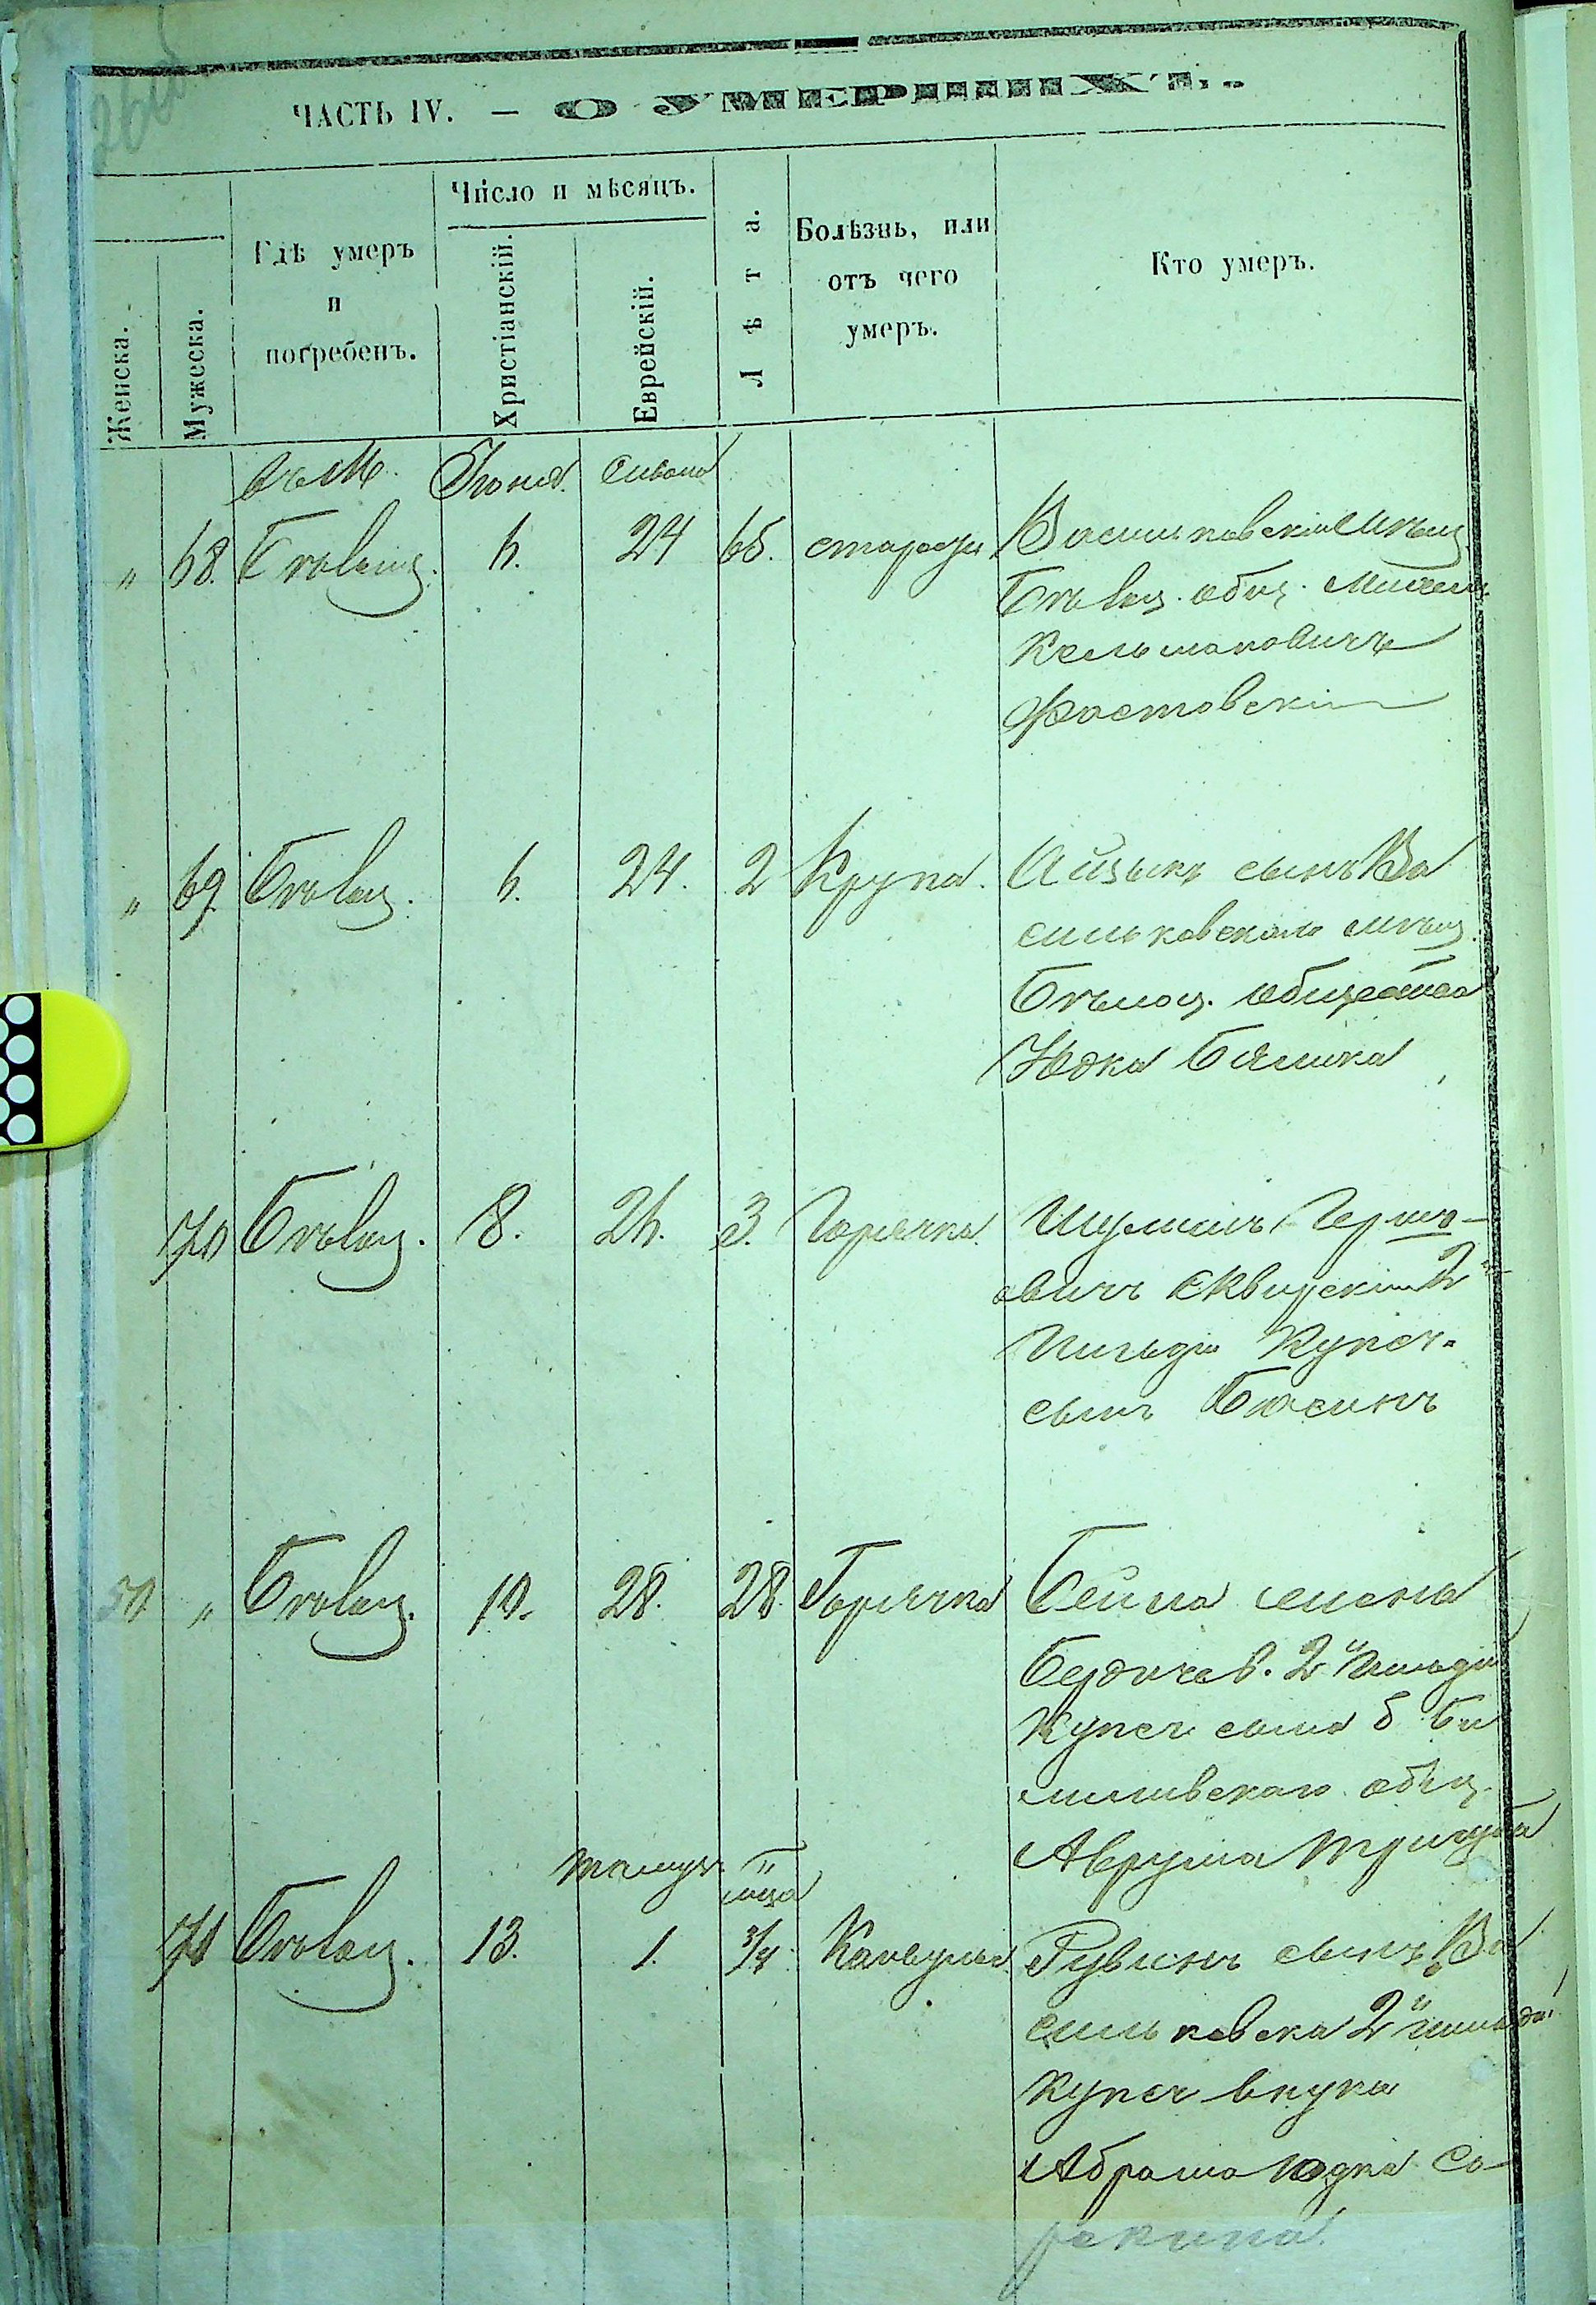 ЧАСТЬ IV. — О УМЕРШИХЪ.
Женска.
Мужеска.
Гдѣ умеръ
и
погребенъ.
Число и мѣсяцъ.
Христіанскій.
Еврейскій.
Лѣта.
Болѣзнь, или
отъ чего
умеръ.
Кто умеръ.
въ М. Іюня Сивана
" 68. Бѣлац. 6. 24 65. старости Васильковскій мѣщ.
Бѣлац. общ.
Кельмановичъ
Фастовскій
" 69 Бѣлац. 6. 24. 2 Крупа. Айзыкъ сынъ Ва
сильковскаго мѣщ.
Бѣлоц. общества
Юдка
70 Бѣлац. 8. 26. 3. Горячка. Шулимъ Герш-
овичъ Сквирскій 2й
Гильдіи Купеч.
сынъ
50 " Бѣлац. 10. 28. 28. Горячка Бейла жена
Бердичев. 2й Гильдіи
Купеч сына б. Би
лиловскаго общ.
Аврума
Тамуз. мѣца
71 Бѣлац. 13. 1. 3/4 Конвульс. Рувинъ сынъ Ва
сильковска 2й гильді
купеч внука
Абрама Юдка Со-
рокина.